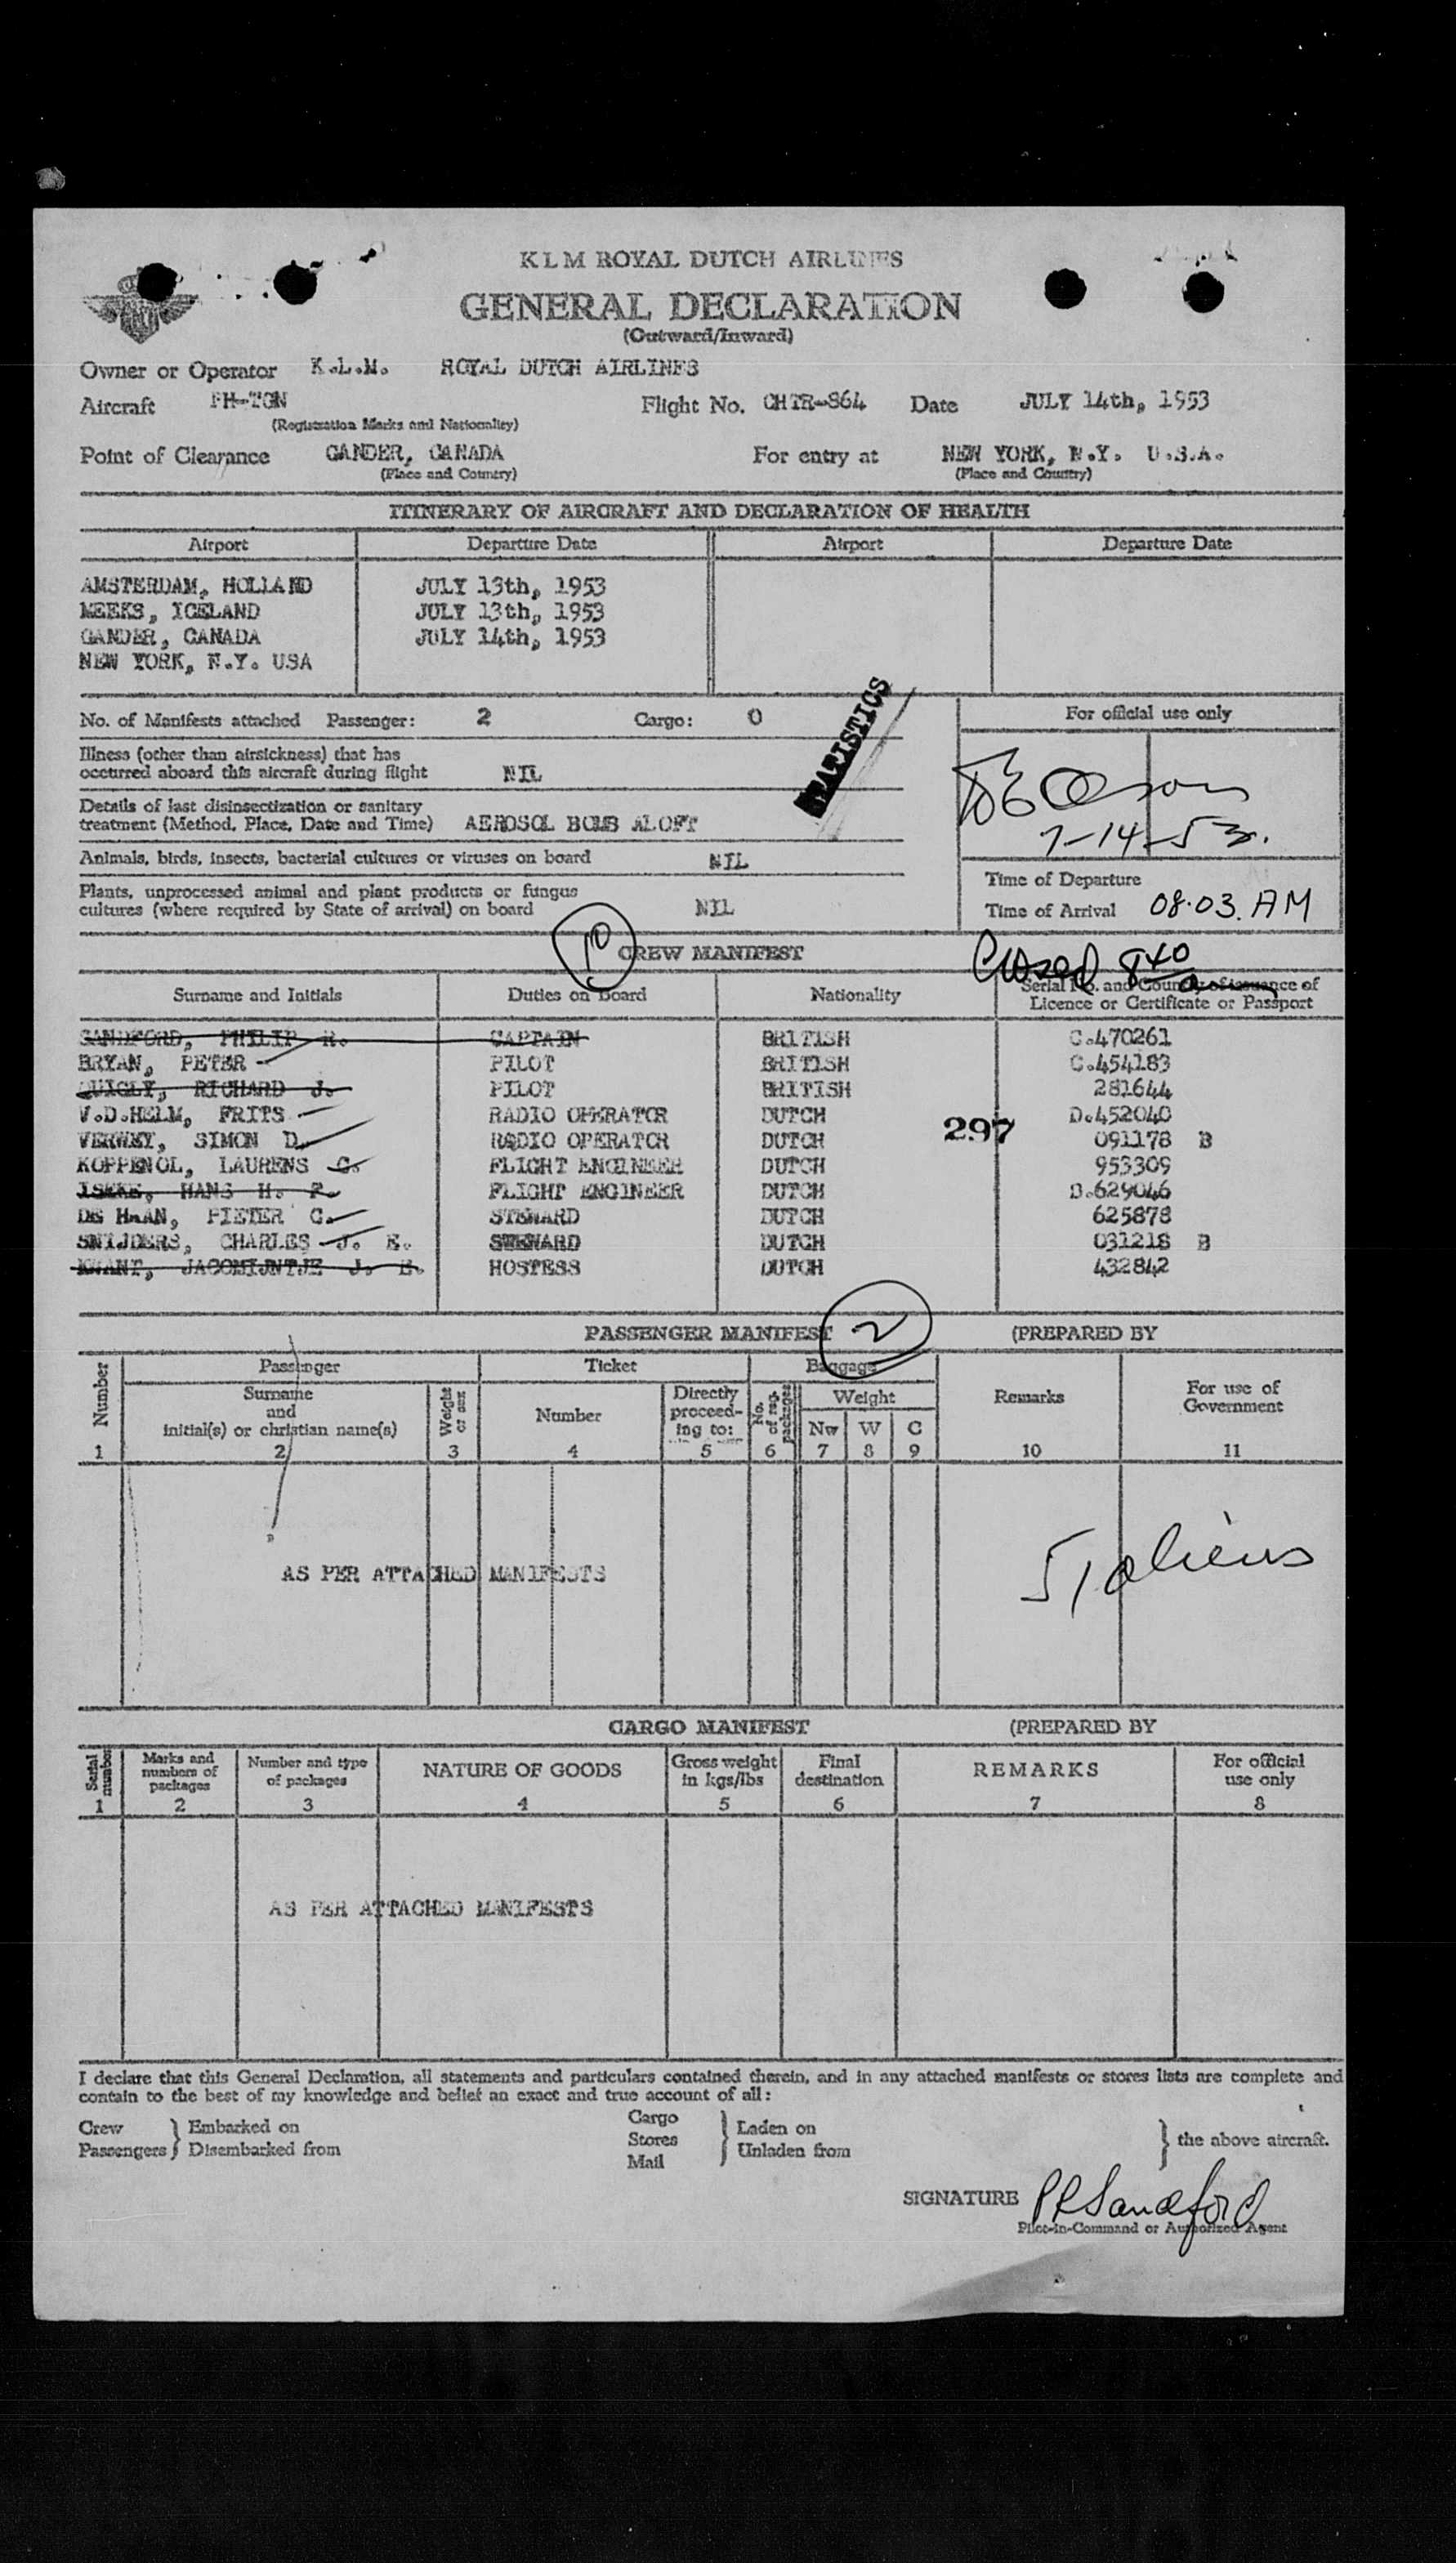 KLM ROYAL DUTCH AIRLINES
GENERAL DECLARATION
(Outward/Inward)
Owner or Operator K.L.M. ROYAL DUTCH AIRLINES
Aircraft PH-TGN Flight No. CHTR-864 Date JULY 14th, 1953
(Registration Marks and Nationality)
Point of Clearance GANDER, CANADA For entry at NEW YORK, N.Y. U.S.A.
(Place and Country) (Place and Country)
ITINERARY OF AIRCRAFT AND DECLARATION OF HEALTH
Airport Departure Date Airport Departure Date
AMSTERDAM, HOLLAND JULY 13th, 1953
MEEKS, ICELAND JULY 13th, 1953
GANDER, CANADA JULY 14th, 1953
NEW YORK, N.Y. USA
No. of Manifests attached Passenger: 2 Cargo: 0
STATISTICS
For official use only
Illness (other than airsickness) that has
occurred aboard this aircraft during flight NIL
Details of last disinsectization or sanitary
treatment (Method, Place, Date and Time) AEROSOL BOMB ALOFT
7-14-53.
Animals, birds, insects, bacterial cultures or viruses on board NIL
Plants, unprocessed animal and plant products or fungus
cultures (where required by State of arrival) on board NIL
Time of Departure
Time of Arrival 08.03. AM
10 CREW MANIFEST Closed 8 40 a
Surname and Initials Duties on Board Nationality Serial No. and Country of issuance of
Licence or Certificate or Passport
SANDFORD, PHILIP R. CAPTAIN BRITISH C.470261
BRYAN, PETER PILOT BRITISH C.454183
QUIGLY, RICHARD J. PILOT BRITISH 281644
V.D.HELM, FRITS RADIO OPERATOR DUTCH D.452040
297
VERWEY, SIMON D. RADIO OPERATOR DUTCH 091178 B
KOPPENOL, LAURENS C. FLIGHT ENGINEER DUTCH 953309
ISEKE, HANS H. P. FLIGHT ENGINEER DUTCH D.629046
DE HAAN, PIETER C. STEWARD DUTCH 625878
SNIJDERS, CHARLES J. E. STEWARD DUTCH 031218 B
KWANT, JACOMIJNTJE J. H. HOSTESS DUTCH 432842
PASSENGER MANIFEST 2 (PREPARED BY
Number Passenger Ticket Baggage Remarks For use of
Government
Surname
and
initial(s) or christian name(s) Weight or sex Number Directly
proceed-
ing to: No. of reg. packages Weight
Nw W C
1 2 3 4 5 6 7 8 9 10 11
AS PER ATTACHED MANIFESTS
51 aliens
CARGO MANIFEST (PREPARED BY
Serial number Marks and
numbers of
packages Number and type
of packages NATURE OF GOODS Gross weight
in kgs/lbs Final
destination REMARKS For official
use only
1 2 3 4 5 6 7 8
AS PER ATTACHED MANIFESTS
I declare that this General Declaration, all statements and particulars contained therein, and in any attached manifests or stores lists are complete and
contain to the best of my knowledge and belief an exact and true account of all:
Crew
Passengers } Embarked on
Disembarked from
Cargo
Stores
Mail } Laden on
Unladen from } the above aircraft.
SIGNATURE PRSandford
Pilot-in-Command or Authorized Agent